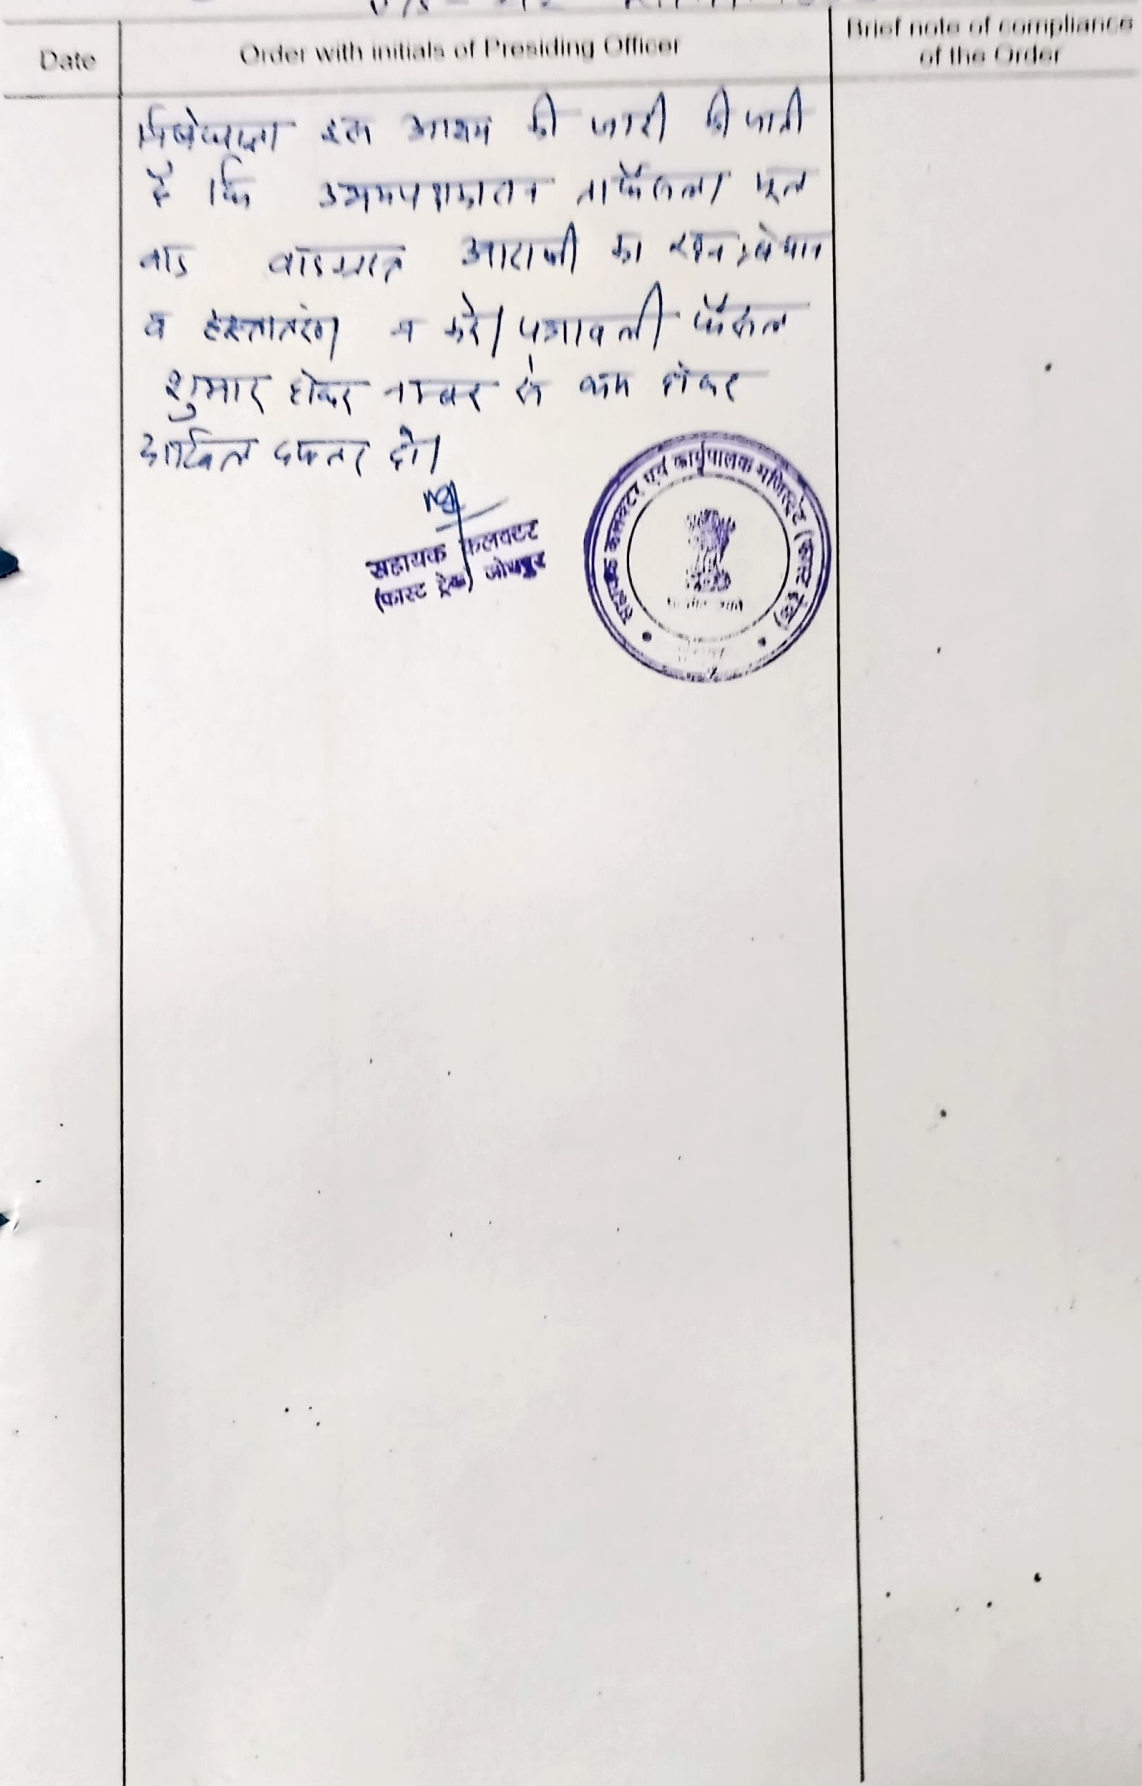 Date
Order with initials of Presiding Officer
Brief note of compliance
of the Order
निषेधाज्ञा इस आशय की जारी की जाती
है कि उभयपक्षकारान ताफैसला मूल
वाद वादग्रस्त आराजी का रहन, बेचान
व हस्तातंरण न करे। पत्रावली फैसल
शुमार होकर नम्बर से कम होकर
दाखिल दफ्तर हो।
सहायक कलक्टर
(फास्ट ट्रेक) जोधपुर
सहायक कलक्टर एवं कार्यपालक मजिस्ट्रेट (फास्ट ट्रेक)